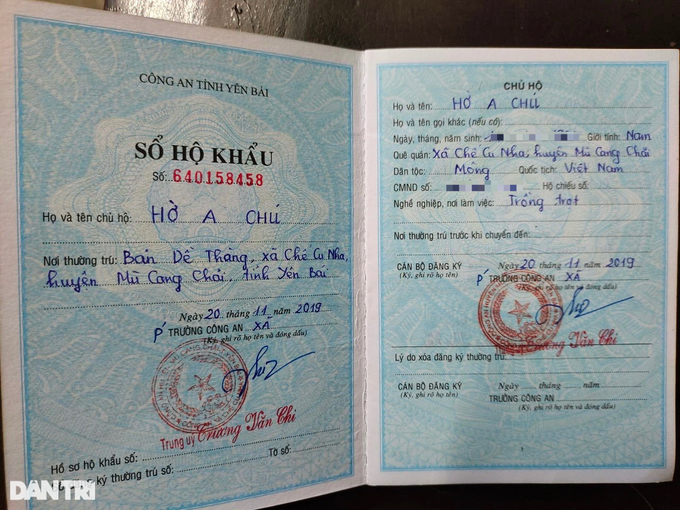 CÔNG AN TỈNH YÊN BÁI
SỔ HỘ KHẨU
Số: 640158458
Họ và tên chủ hộ: HỜ A CHÚ
Nơi thường trú: Bản Dề Thàng, xã Chế Cu Nha,
huyện Mù Cang Chải, tỉnh Yên Bái
Ngày 20 tháng 11 năm 2019
P' TRƯỞNG CÔNG AN XÃ
(Ký, ghi rõ họ tên và đóng dấu)
Trung uý Trương Văn Chi
Hồ sơ hộ khẩu số:
ký thường trú số: Tờ số:
DÂN TRÍ
CHỦ HỘ
Họ và tên: HỜ A CHÚ
Họ và tên gọi khác (nếu có):
Ngày, tháng, năm sinh: Giới tính: Nam
Quê quán: Xã Chế Cu Nha, huyện Mù Cang Chải
Dân tộc: Mông Quốc tịch: Việt Nam
CMND số: Hộ chiếu số:
Nghề nghiệp, nơi làm việc: Trồng trọt
Nơi thường trú trước khi chuyển đến:
Ngày 20 tháng 11 năm 2019
CÁN BỘ ĐĂNG KÝ P' TRƯỞNG CÔNG AN XÃ
(Ký, ghi rõ họ tên) (Ký, ghi rõ họ tên và đóng dấu)
Trương Văn Chi
Lý do xóa đăng ký thường trú:
Ngày tháng năm
CÁN BỘ ĐĂNG KÝ TRƯỞNG CÔNG AN
(Ký, ghi rõ họ tên) (Ký, ghi rõ họ tên và đóng dấu)